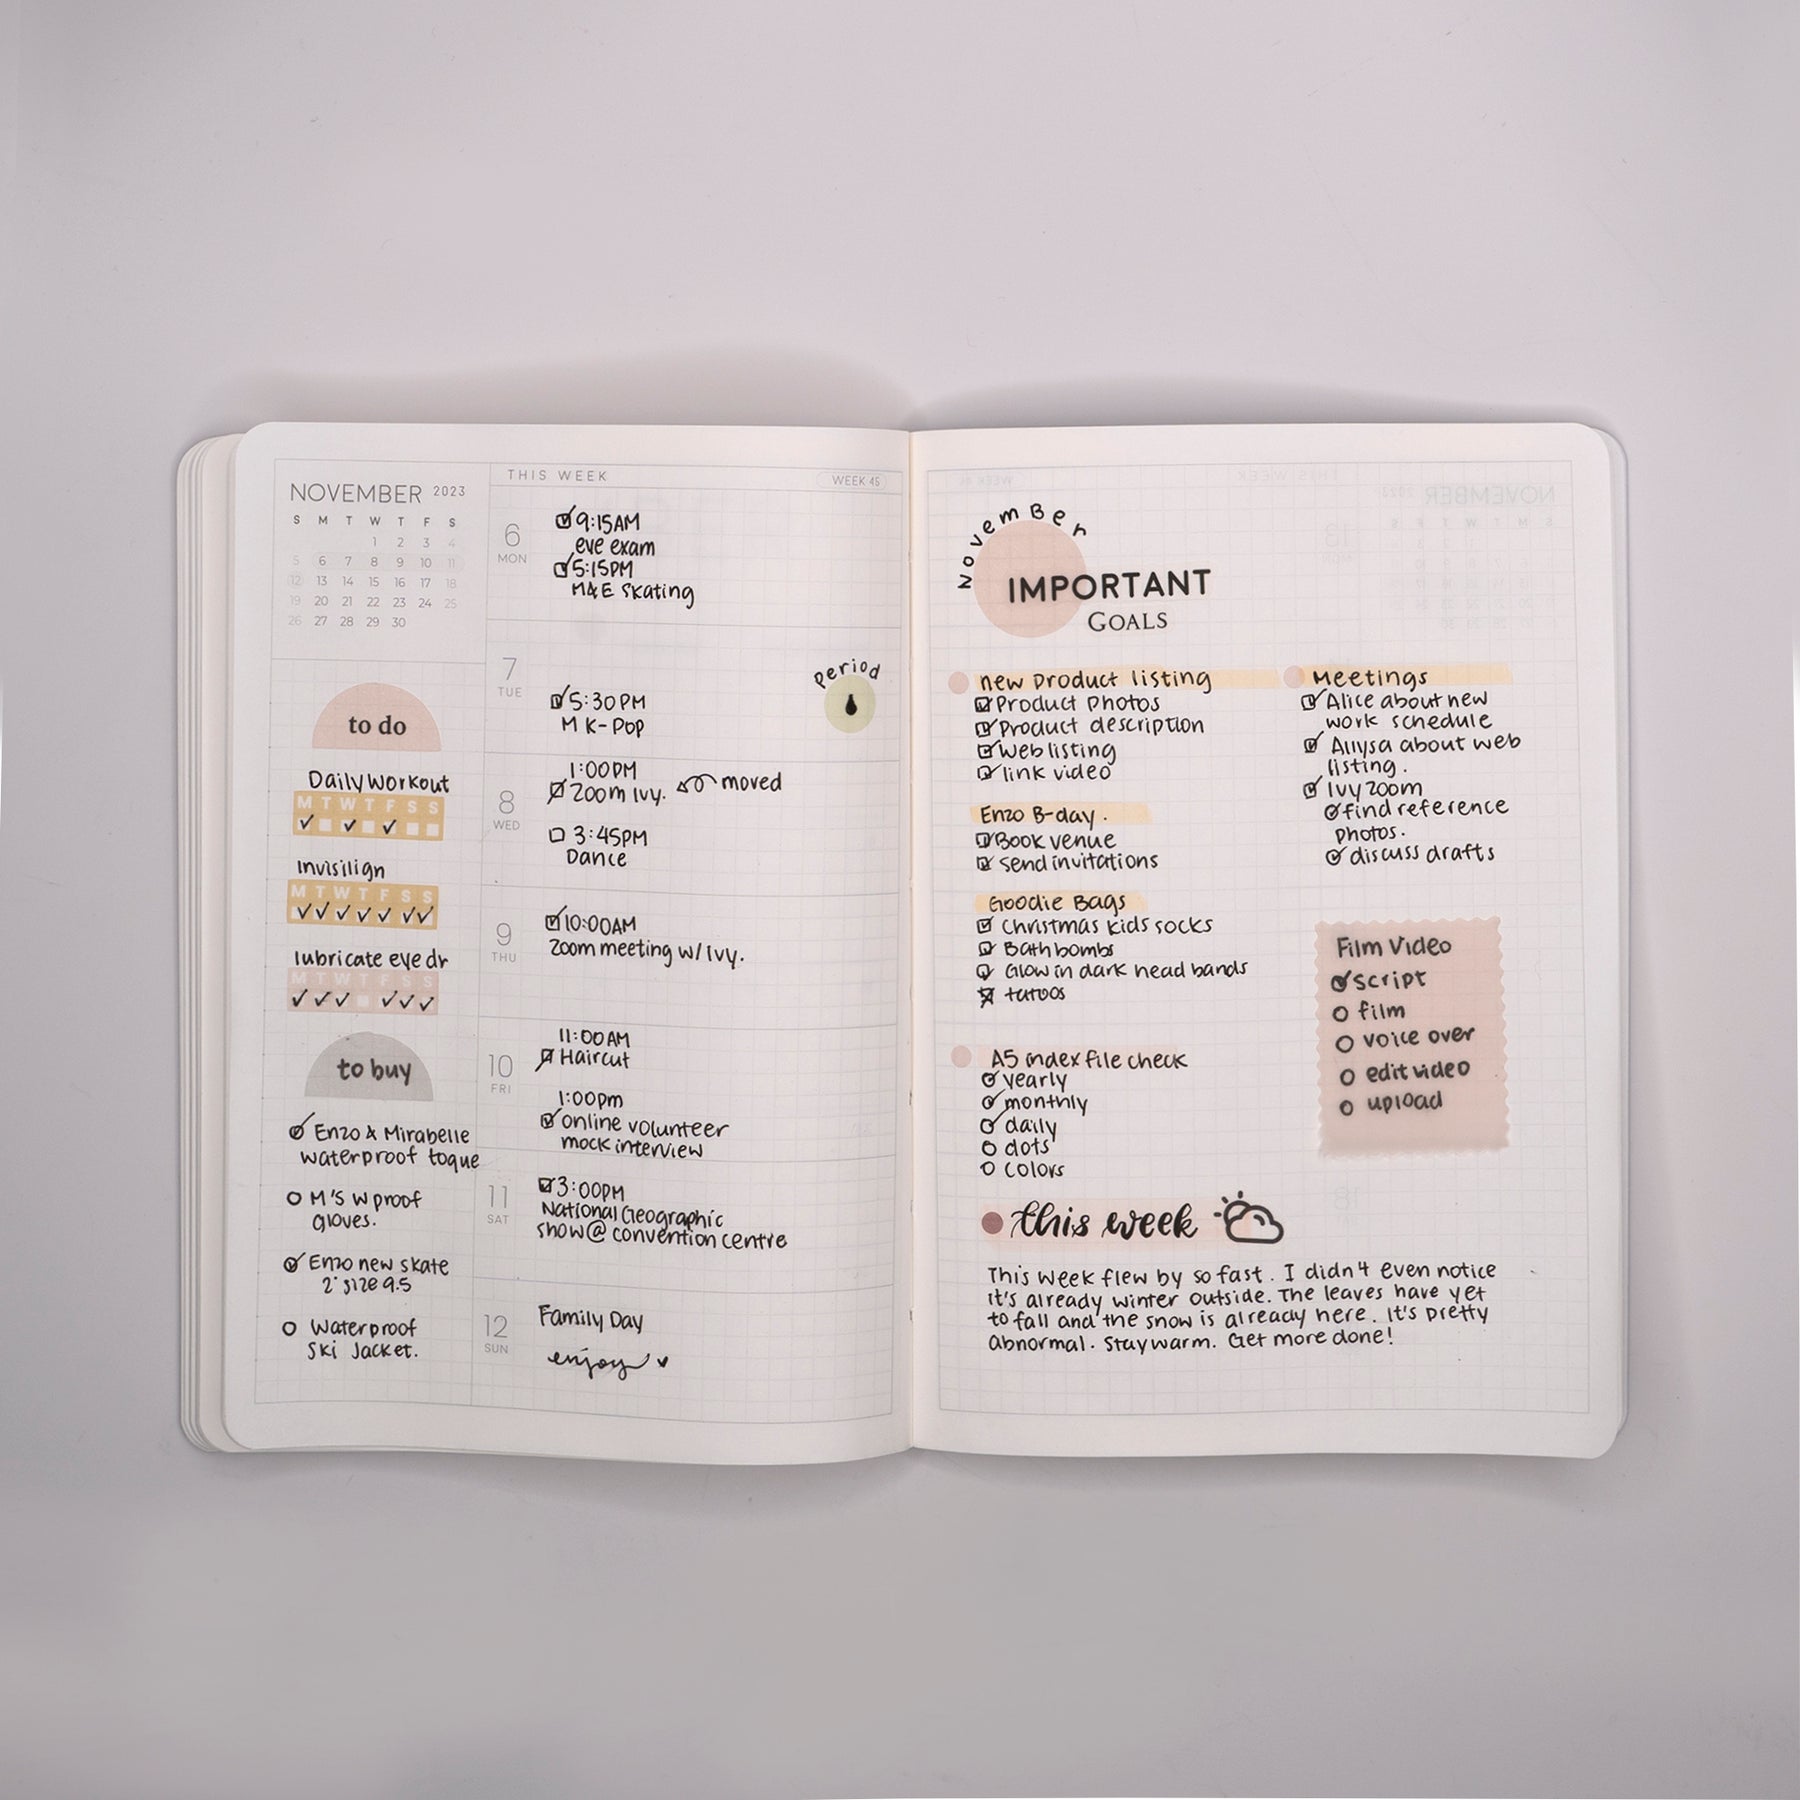 NOVEMBER 2023
S M T W T F S
1 2 3 4
5 6 7 8 9 10 11
12 13 14 15 16 17 18
19 20 21 22 23 24 25
26 27 28 29 30
to do
Daily Workout
M T W T F S S
Invisilign
M T W T F S S
lubricate eye dr
M T W T F S S
to buy
Enzo & Mirabelle
waterproof toque
M'S W proof
gloves.
Enzo new skate
2" size 9.5
Waterproof
Ski Jacket.
THIS WEEK
WEEK 45
6
MON
9:15AM
eye exam
5:15PM
M&E Skating
7
TUE
5:30PM
M K-Pop
Period
8
WED
1:00PM
Zoom Ivy.
moved
3:45PM
Dance
9
THU
10:00AM
Zoom meeting w/ Ivy.
10
FRI
11:00AM
Haircut
1:00pm
online volunteer
mock interview
11
SAT
3:00PM
National Geographic
show@ convention centre
12
SUN
Family Day
enjoy
November
IMPORTANT
GOALS
new Product listing
Product Photos
Product description
Web listing
link video
Enzo B-day.
Book venue
send invitations
Goodie Bags
Christmas kids socks
Bath bombs
Glow in dark head bands
tattoos
A5 index file check
yearly
monthly
daily
dots
colors
Meetings
Alice about new
work schedule
Allysa about web
listing.
Ivy zoom
find reference
photos.
discuss drafts
Film Video
script
film
voice over
edit video
upload
this week
This week flew by so fast. I didn't even notice
it's already winter outside. The leaves have yet
to fall and the snow is already here. It's pretty
abnormal. Stay warm. Get more done!